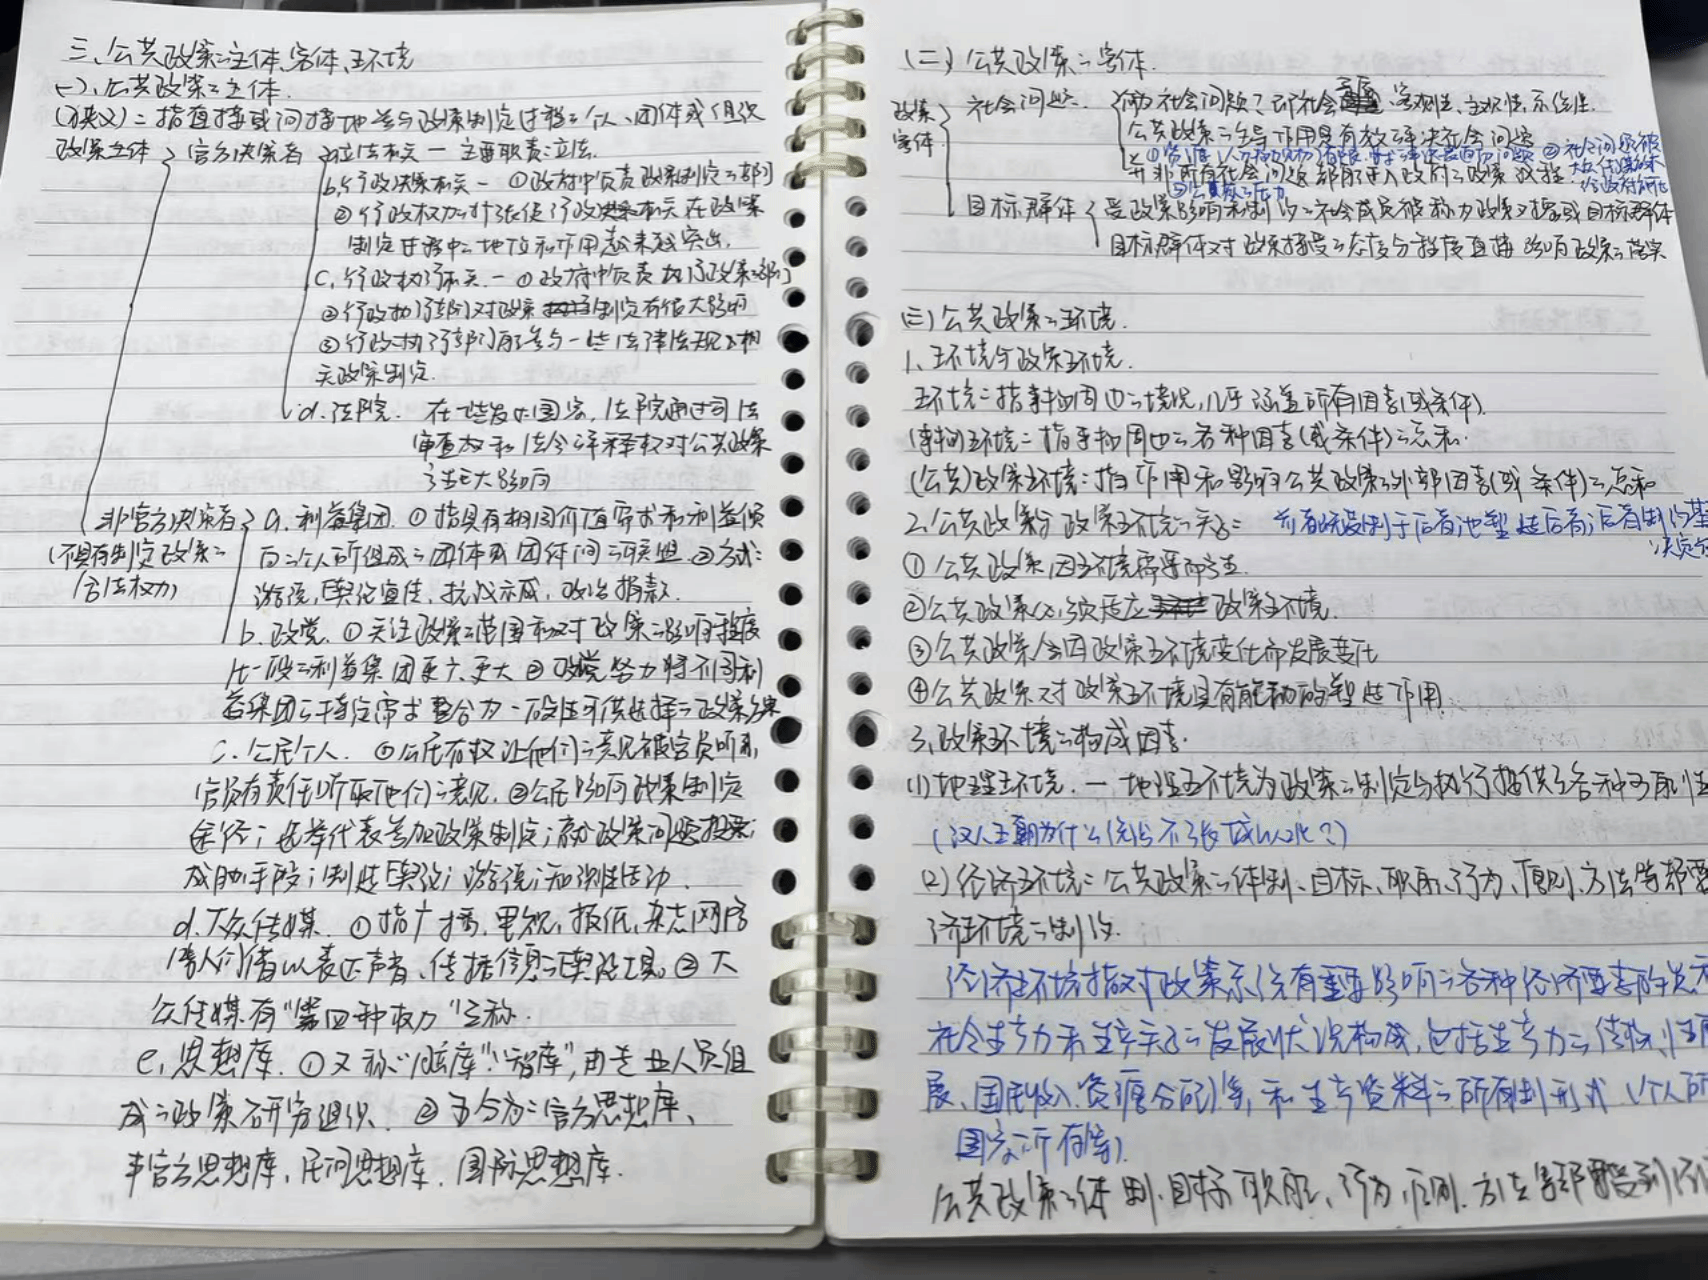 三、公共政策之主体、客体、环境
(一)、公共政策之主体.
(狭义)：指直接或间接地参与政策制定过程之个人、团体或组织
政策主体 官方决策者 a立法机关 — 主要职责：立法.
b.行政决策机关 — ①政府中负责政策制定之部门
②行政权力扩张使行政决策机关在政策
制定过程中之地位和作用越来越突出.
C.行政执行机关. — ①政府中负责执行政策之部门
②行政执行部门对政策制定有很大影响
③行政执行部门可参与一些法律法规及相
关政策制定.
d.法院. 在一些发达国家, 法院通过司法
审查权和法令解释权对公共政策
产生巨大影响
非官方决策者 a.利益集团. ①指具有相同价值需求和利益倾
(不具有制定政策之 向之个人所组成之团体或团体间之联盟. ②方式：
合法权力) 游说, 舆论宣传, 抗议示威, 政治捐款.
b.政党. ①关注政策之范围和对政策之影响程度
比一般之利益集团更广更大 ②政党努力将不同利
益集团之特定需求整合为一般性可供选择之政策方案
C.公民个人. ①公民有权让他们之意见被官员听取,
官员有责任听取他们之意见. ②公民影响政策制定
途径；选举代表参加政策制定；就政策问题投票；
威胁手段；制造舆论；游说；知识性活动.
d.大众传媒. ①指广播、电视、报纸、杂志网络
等人们借以表达声音、传播信息之舆论工具. ②大
众传媒有“第四种权力”之称.
e.思想库. ①又称“脑库”“智库”, 由专业人员组
成之政策研究组织. ②可分为：官方思想库、
半官方思想库, 民间思想库. 国际思想库.
(二) 公共政策之客体.
政策客体 社会问题. 何为社会问题？ 客观性、主观性、系统性.
公共政策之主导作用是有效解决社会问题
并非所有社会问题都可进入政府之政策议程
目标群体 受政策影响和制约之社会成员被称为政策对象或目标群体
目标群体对政策接受之态度与程度直接影响政策之落实
(三) 公共政策之环境.
1、环境与政策环境.
环境：指事物周边之境况, 几乎涵盖所有因素(或条件).
事物环境：指事物周边之各种因素(或条件)之总和.
(公共)政策环境：指作用和影响公共政策之外部因素(或条件)之总和
2.公共政策与政策环境之关系： 前者既受制于后者也塑造后者；后者制约
决定
①公共政策因环境需要而产生.
②公共政策必须适应政策环境.
③公共政策会因政策环境变化而发展变化
④公共政策对政策环境具有能动的塑造作用
3.政策环境之构成因素.
(1)地理环境. — 地理环境为政策之制定与执行提供了各种可能性
(汉人王朝为什么统治不了长城以北？)
(2)经济环境：公共政策之体制、目标、职能、行为、原则、方法等都要
济环境之制约.
经济环境指对政策系统有重要影响之各种经济要素的总和
社会生产力和生产关系之发展状况构成, 包括生产力之结构、性质
展、国民收入、资源分配等, 和生产资料之所有制形式 (个人所
国家所有等).
公共政策之体制、目标、职能、行为、原则、方法等都要受到